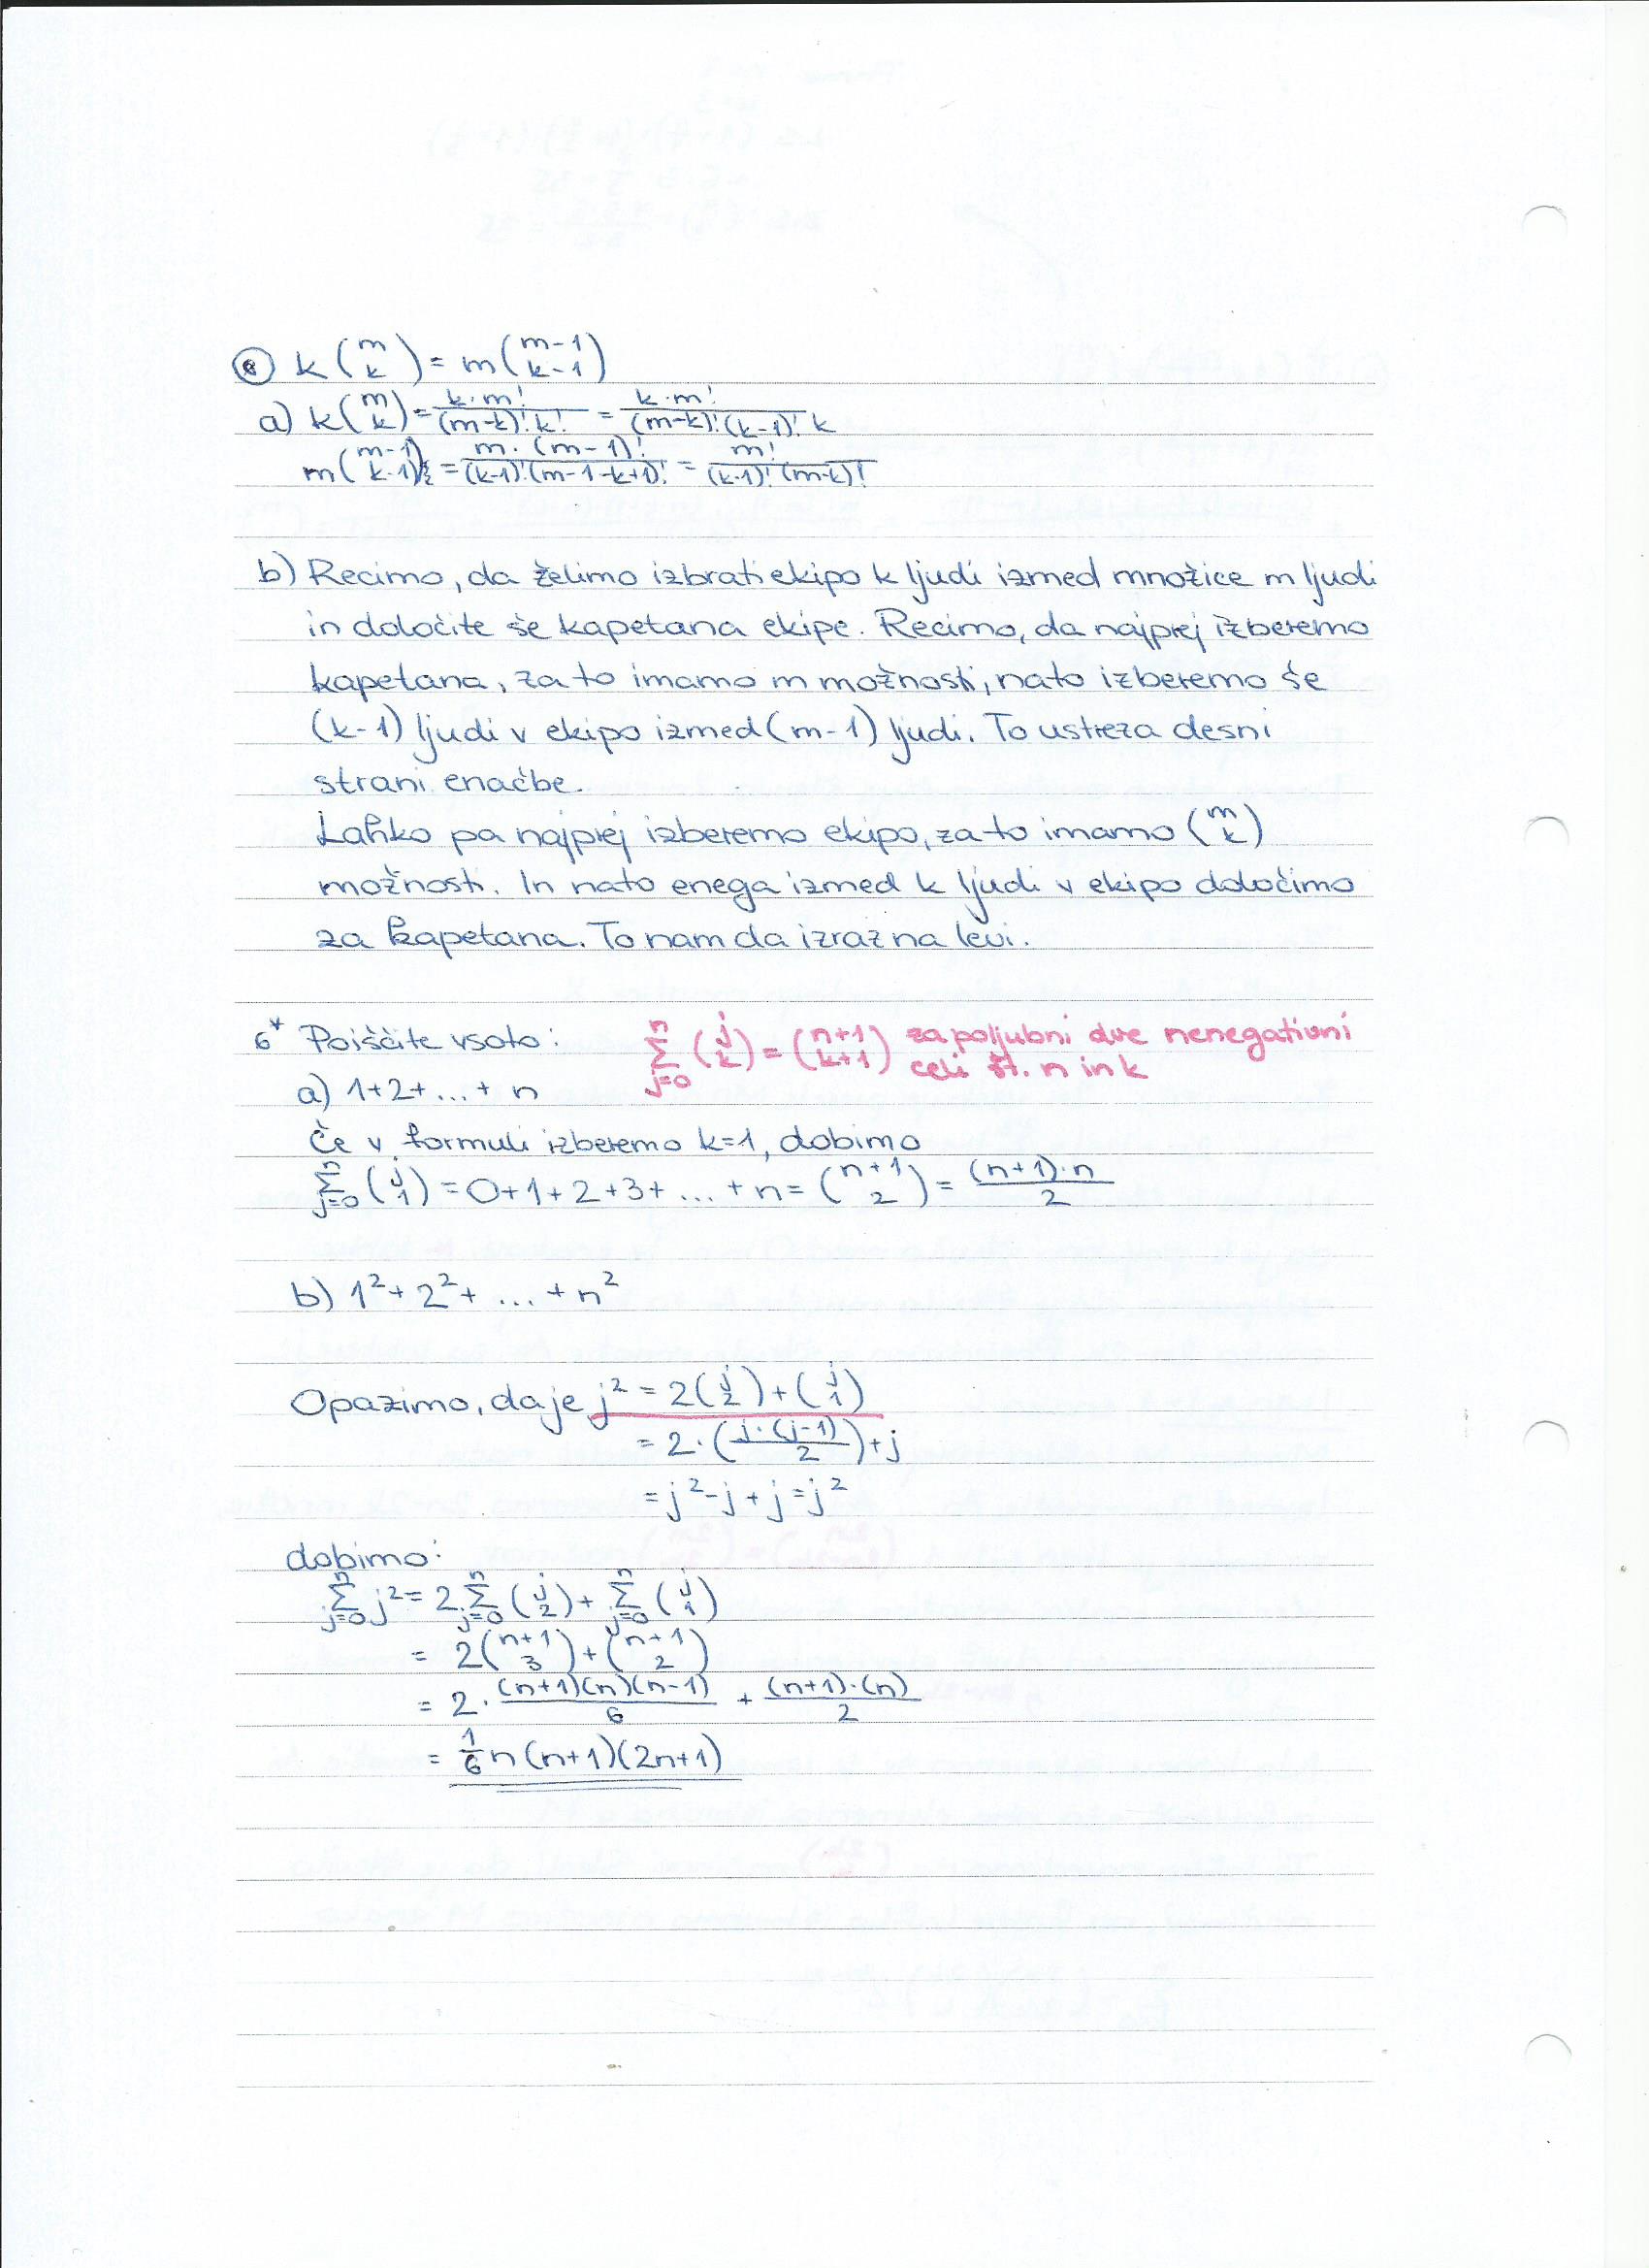 k(m k) = m(m-1 k-1)
a) k(m k) = k·m!/((m-k)! k!) = k·m!/((m-k)!(k-1)! k)
m(m-1 k-1) = m·(m-1)!/((k-1)!(m-1-k+1)!) = m!/((k-1)!(m-k)!)
b) Recimo, da želimo izbrati ekipo k ljudi izmed množice m ljudi
in določite še kapetana ekipe. Recimo, da najprej izberemo
kapetana, za to imamo m možnosti, nato izberemo še
(k-1) ljudi v ekipo izmed (m-1) ljudi. To ustreza desni
strani enačbe.
Lahko pa najprej izberemo ekipo, za to imamo (m k)
možnosti. In nato enega izmed k ljudi v ekipo določimo
za kapetana. To nam da izraz na levi.
6* Poiščite vsoto:
∑_{j=0}^{n} (j k) = (n+1 k+1) za poljubni dve nenegativni
celi št. n in k
a) 1+2+...+n
Če v formuli izberemo k=1, dobimo
∑_{j=0}^{n} (j 1) = 0+1+2+3+...+n = (n+1 2) = (n+1)·n/2
b) 1²+2²+...+n²
Opazimo, da je j² = 2(j 2)+(j 1)
= 2·(j·(j-1)/2)+j
= j²-j+j = j²
dobimo:
∑_{j=0}^{n} j² = 2·∑_{j=0}^{n} (j 2) + ∑_{j=0}^{n} (j 1)
= 2(n+1 3)+(n+1 2)
= 2·(n+1)(n)(n-1)/6 + (n+1)·(n)/2
= 1/6 n(n+1)(2n+1)